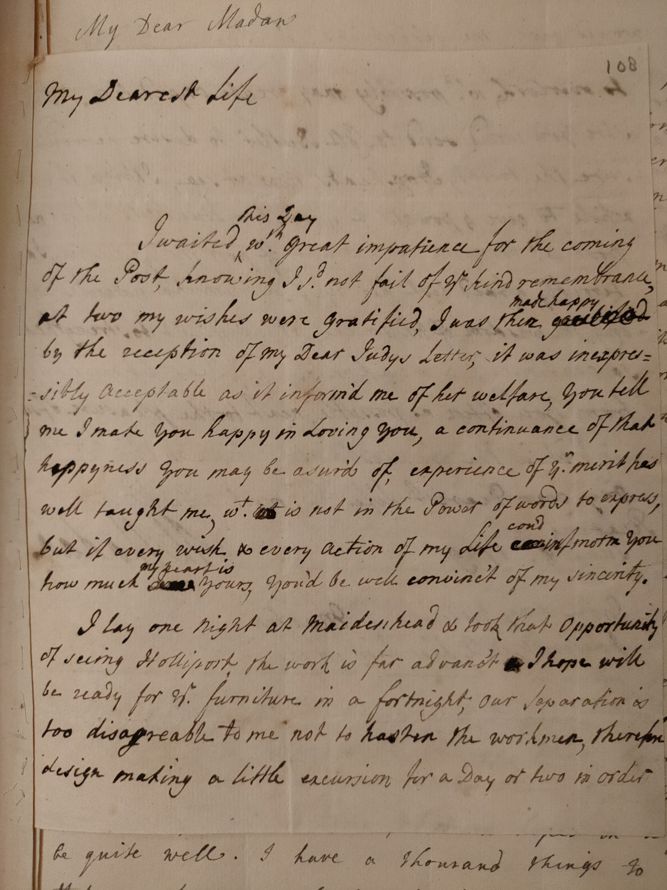 My Dear Madan
108
My Dearest Life
this Day
I waited wth. great impatience for the coming
of the Post, knowing I sd. not fail of yr. kind remembrance,
at two my wishes were gratified, I was then made happy
by the reception of my Dear Judys Letter, it was inexpres=
=sibly acceptable as it inform'd me of her welfare, you tell
me I make you happy in Loving you, a continuance of that
happyness you may be asur'd of, experience of yr. merit has
well taught me, wt. is not in the Power of words to express,
but if every wish & every action of my Life coud inform you
how much my heart is yours, you'd be well convinc't of my sincerity.
I lay one Night at Maidenhead & took that Opportunity
of seeing Holliport, the work is far advanc't I hope will
be ready for yr. furniture in a fortnight, our Separation is
too disagreable to me not to hasten the workmen, therefore
design making a little excursion for a Day or two in order
be quite well. I have a thousand things to